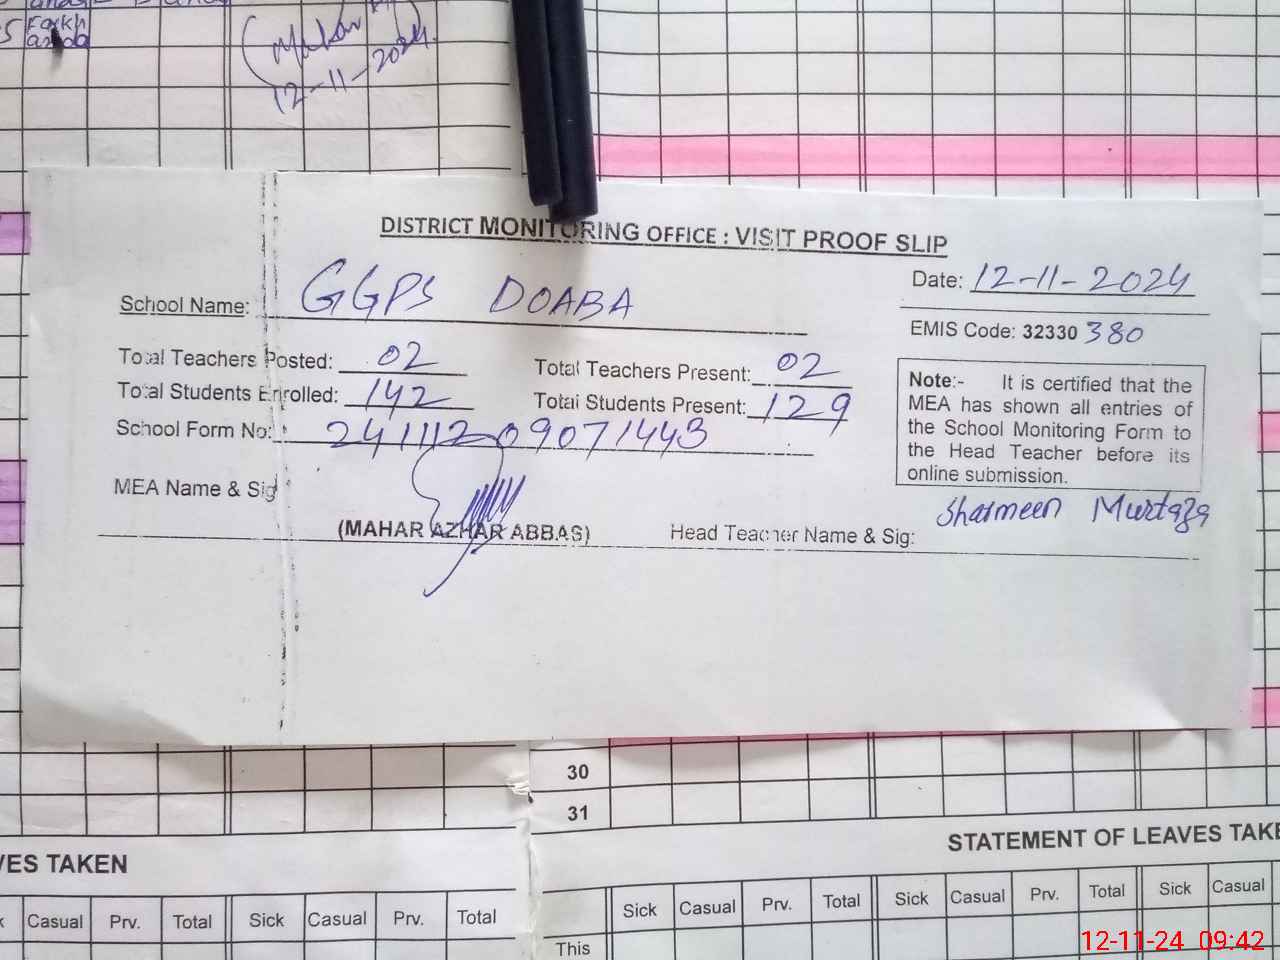 Farkh
Mahar
12-11-2024.
DISTRICT MONITORING OFFICE : VISIT PROOF SLIP
Date: 12-11-2024
School Name: GGPS DOABA
EMIS Code: 32330 380
Total Teachers Posted: 02 Total Teachers Present: 02
Total Students Enrolled: 142 Total Students Present: 129
School Form No: 24111209071443
Note:- It is certified that the
MEA has shown all entries of
the School Monitoring Form to
the Head Teacher before its
online submission.
MEA Name & Sig
Sharmeen Murtaza
(MAHAR AZHAR ABBAS) Head Teacher Name & Sig:
30
31
STATEMENT OF LEAVES TAKE
VES TAKEN
Casual Prv. Total Sick Casual Prv. Total
Sick Casual Prv. Total Sick Casual Prv. Total Sick Casual
This
12-11-24 09:42